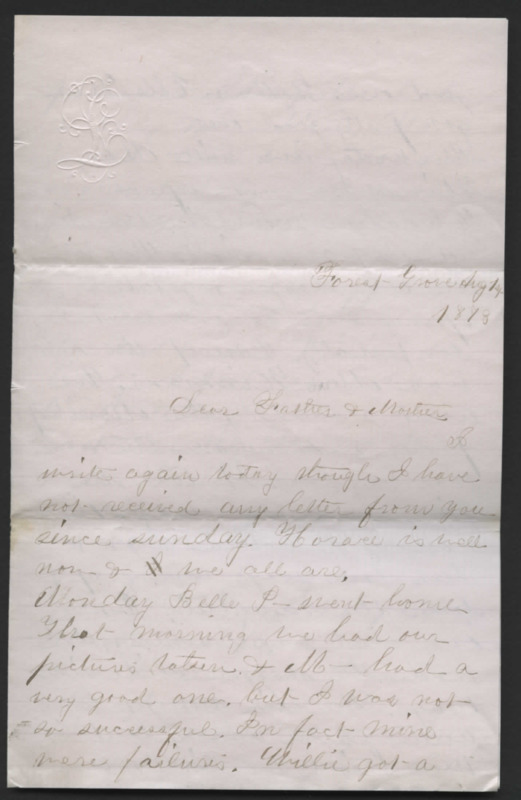 Forest Grove Aug 14
1878
Dear Father & Mother
I
write again today though I have
not received any letter from you
since sunday. Horace is well
now & we all are.
Monday Belle P— went home
That morning we had our
pictures taken. & M— had a
very good one. but I was not
so successful. In fact mine
were failures. Willie got a